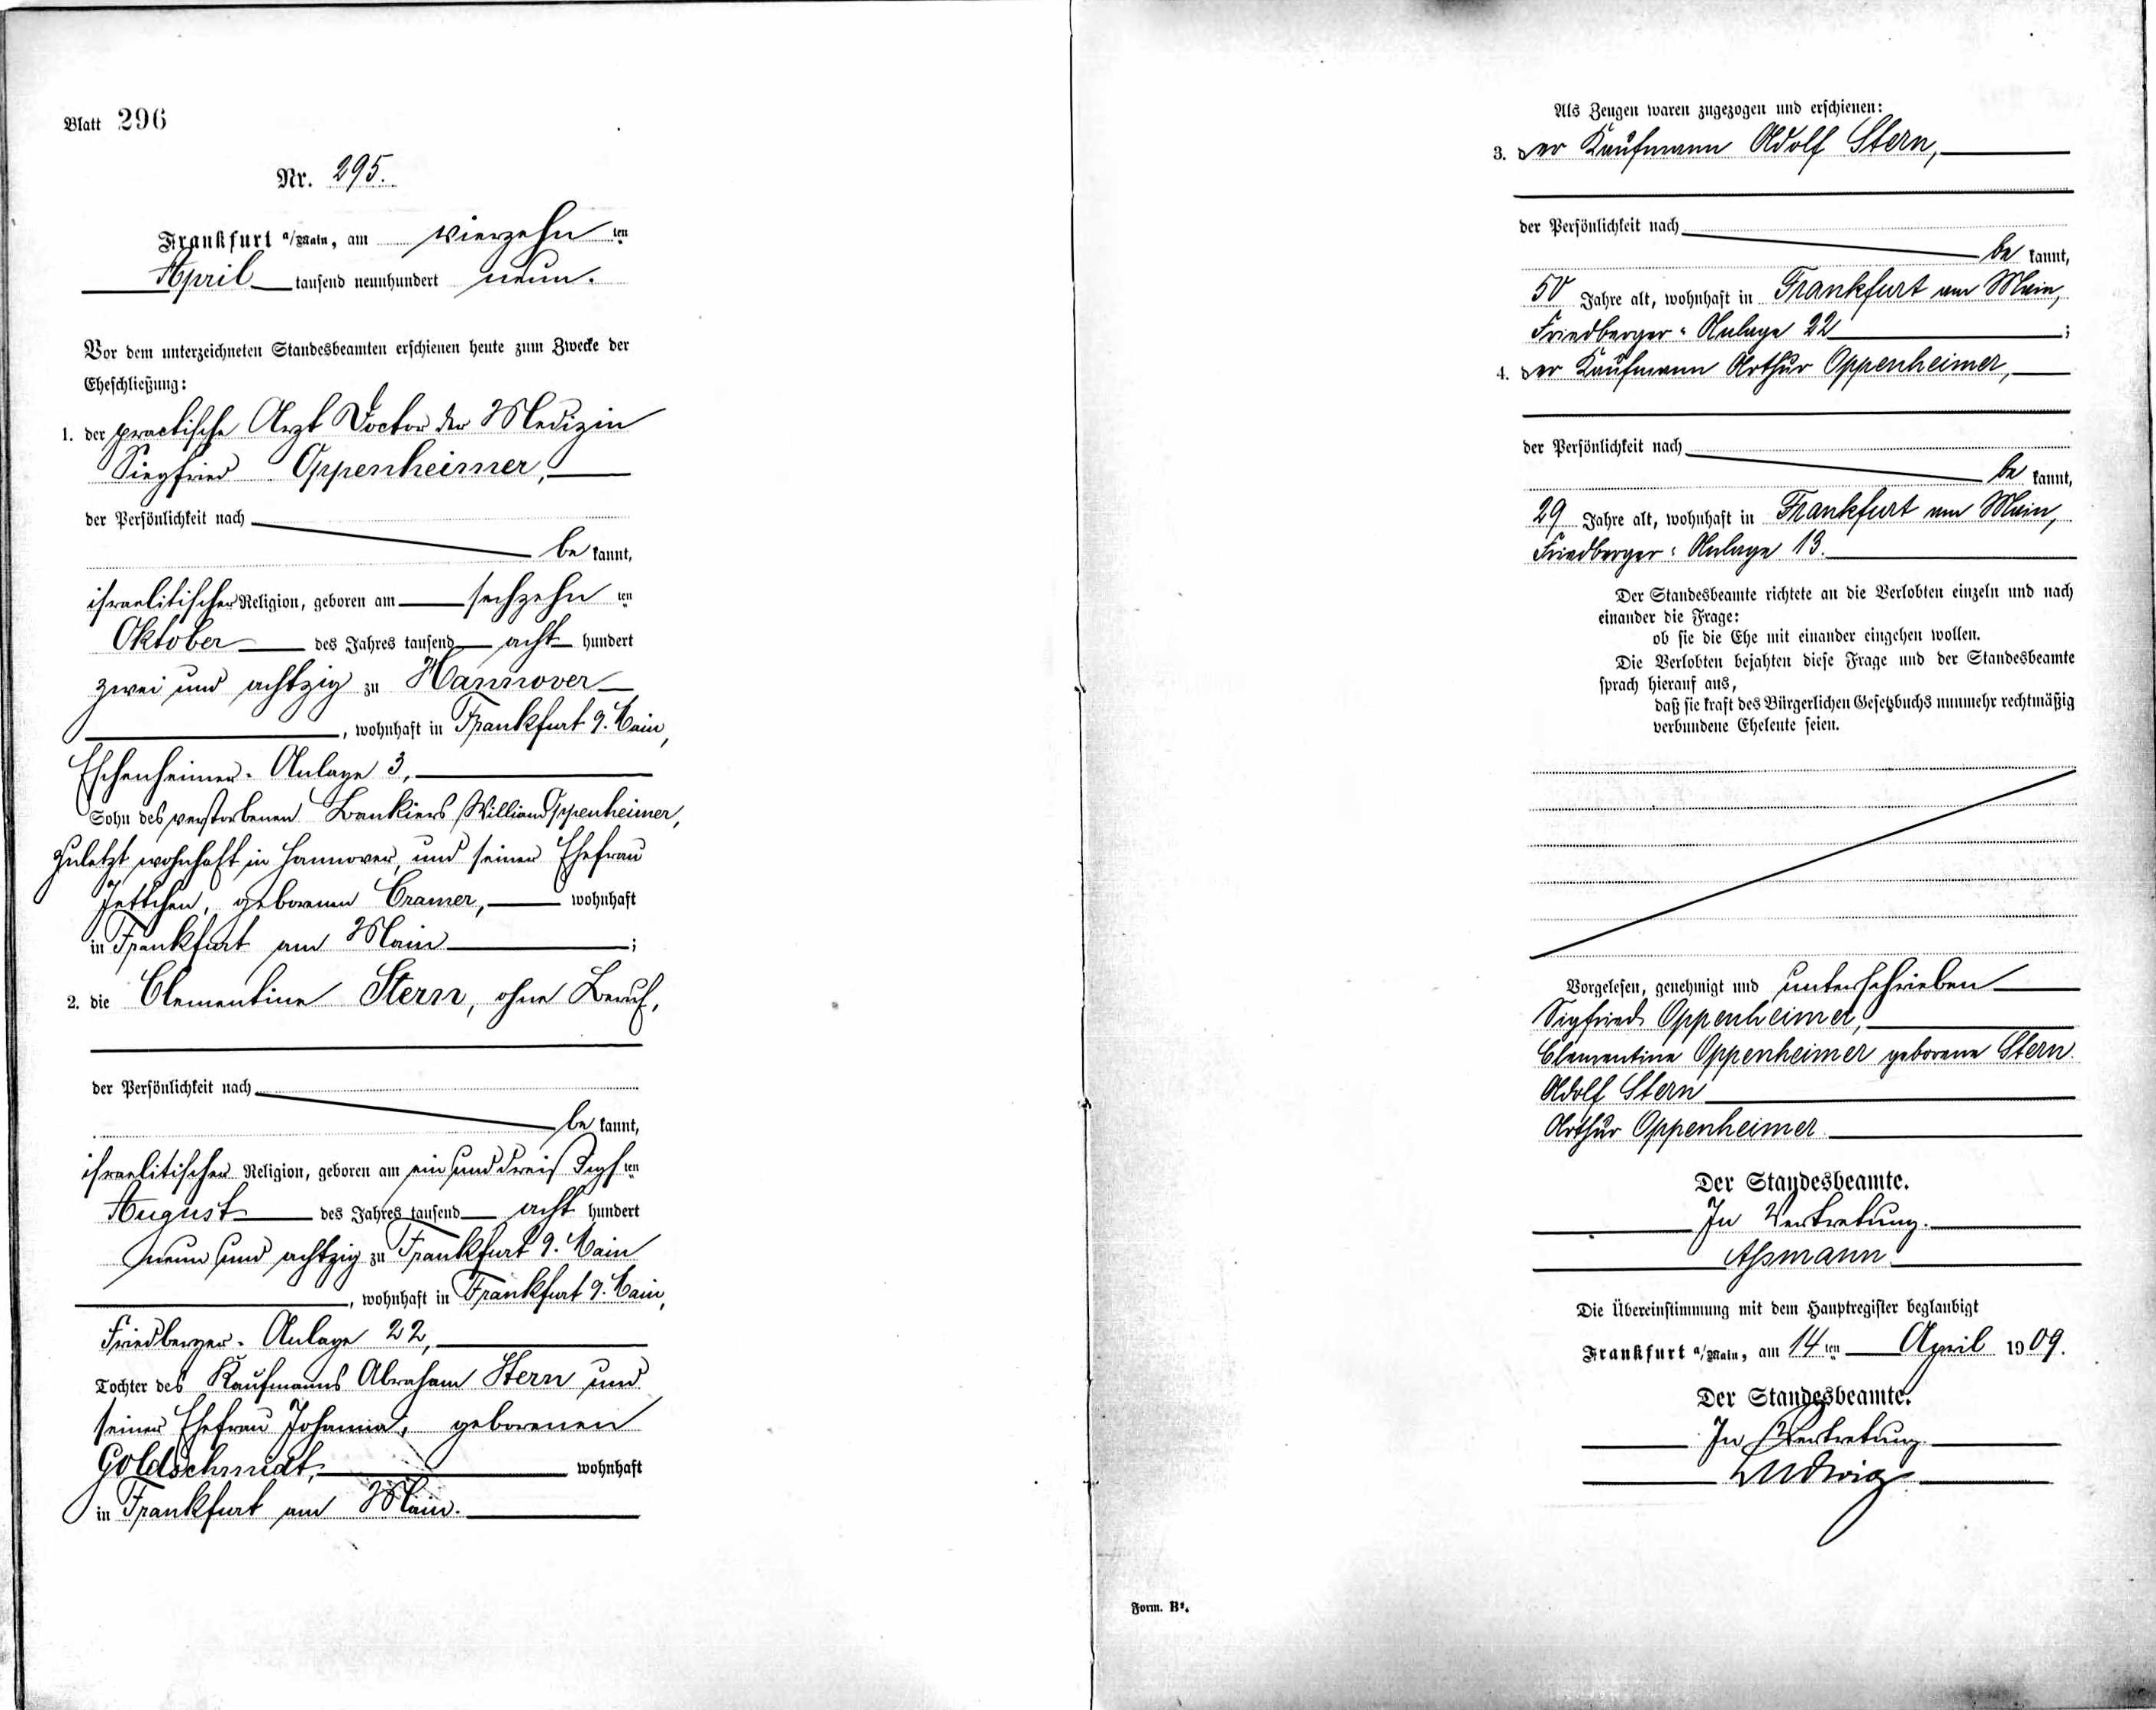 Blatt 296
Nr. 295.
Frankfurt a/Main, am vierzehn ten
April tausend neunhundert neun.
Vor dem unterzeichneten Standesbeamten erschienen heute zum Zwecke der
Eheschließung:
1. der practische Arzt Doctor der Medizin
Siegfried Oppenheimer,
der Persönlichkeit nach
be kannt,
israelitischer Religion, geboren am sechzehn ten
Oktober des Jahres tausend acht hundert
zwei und achtzig zu Hannover
, wohnhaft in Frankfurt a. Main,
Eschenheimer-Anlage 3,
Sohn des verstorbenen Bankiers William Oppenheimer,
zuletzt wohnhaft in Hannover, und seiner Ehefrau
Jettchen, geborenen Cramer, wohnhaft
in Frankfurt am Main ;
2. die Clementine Stern, ohne Beruf,
der Persönlichkeit nach
be kannt,
israelitischer Religion, geboren am ein und dreißigst ten
August des Jahres tausend acht hundert
neun und achtzig zu Frankfurt a. Main
, wohnhaft in Frankfurt a. Main,
Friedberger-Anlage 22,
Tochter des Kaufmanns Abraham Stern und
seiner Ehefrau Johanna, geborenen
Goldschmidt, wohnhaft
in Frankfurt am Main.
Als Zeugen waren zugezogen und erschienen:
3. der Kaufmann Adolf Stern,
der Persönlichkeit nach
be kannt,
50 Jahre alt, wohnhaft in Frankfurt am Main,
Friedberger-Anlage 22 ;
4. der Kaufmann Arthur Oppenheimer,
der Persönlichkeit nach
be kannt,
29 Jahre alt, wohnhaft in Frankfurt am Main,
Friedberger-Anlage 13.
Der Standesbeamte richtete an die Verlobten einzeln und nach
einander die Frage:
ob sie die Ehe mit einander eingehen wollen.
Die Verlobten bejahten diese Frage und der Standesbeamte
sprach hierauf aus,
daß sie kraft des Bürgerlichen Gesetzbuchs nunmehr rechtmäßig
verbundene Eheleute seien.
Vorgelesen, genehmigt und unterschrieben
Sigfried Oppenheimer,
Clementine Oppenheimer geborene Stern
Adolf Stern
Arthur Oppenheimer
Der Standesbeamte.
In Vertretung.
Aßmann
Die Übereinstimmung mit dem Hauptregister beglaubigt
Frankfurt a/Main, am 14 ten April 1909.
Der Standesbeamte.
In Vertretung.
Ludwig
Form. B².